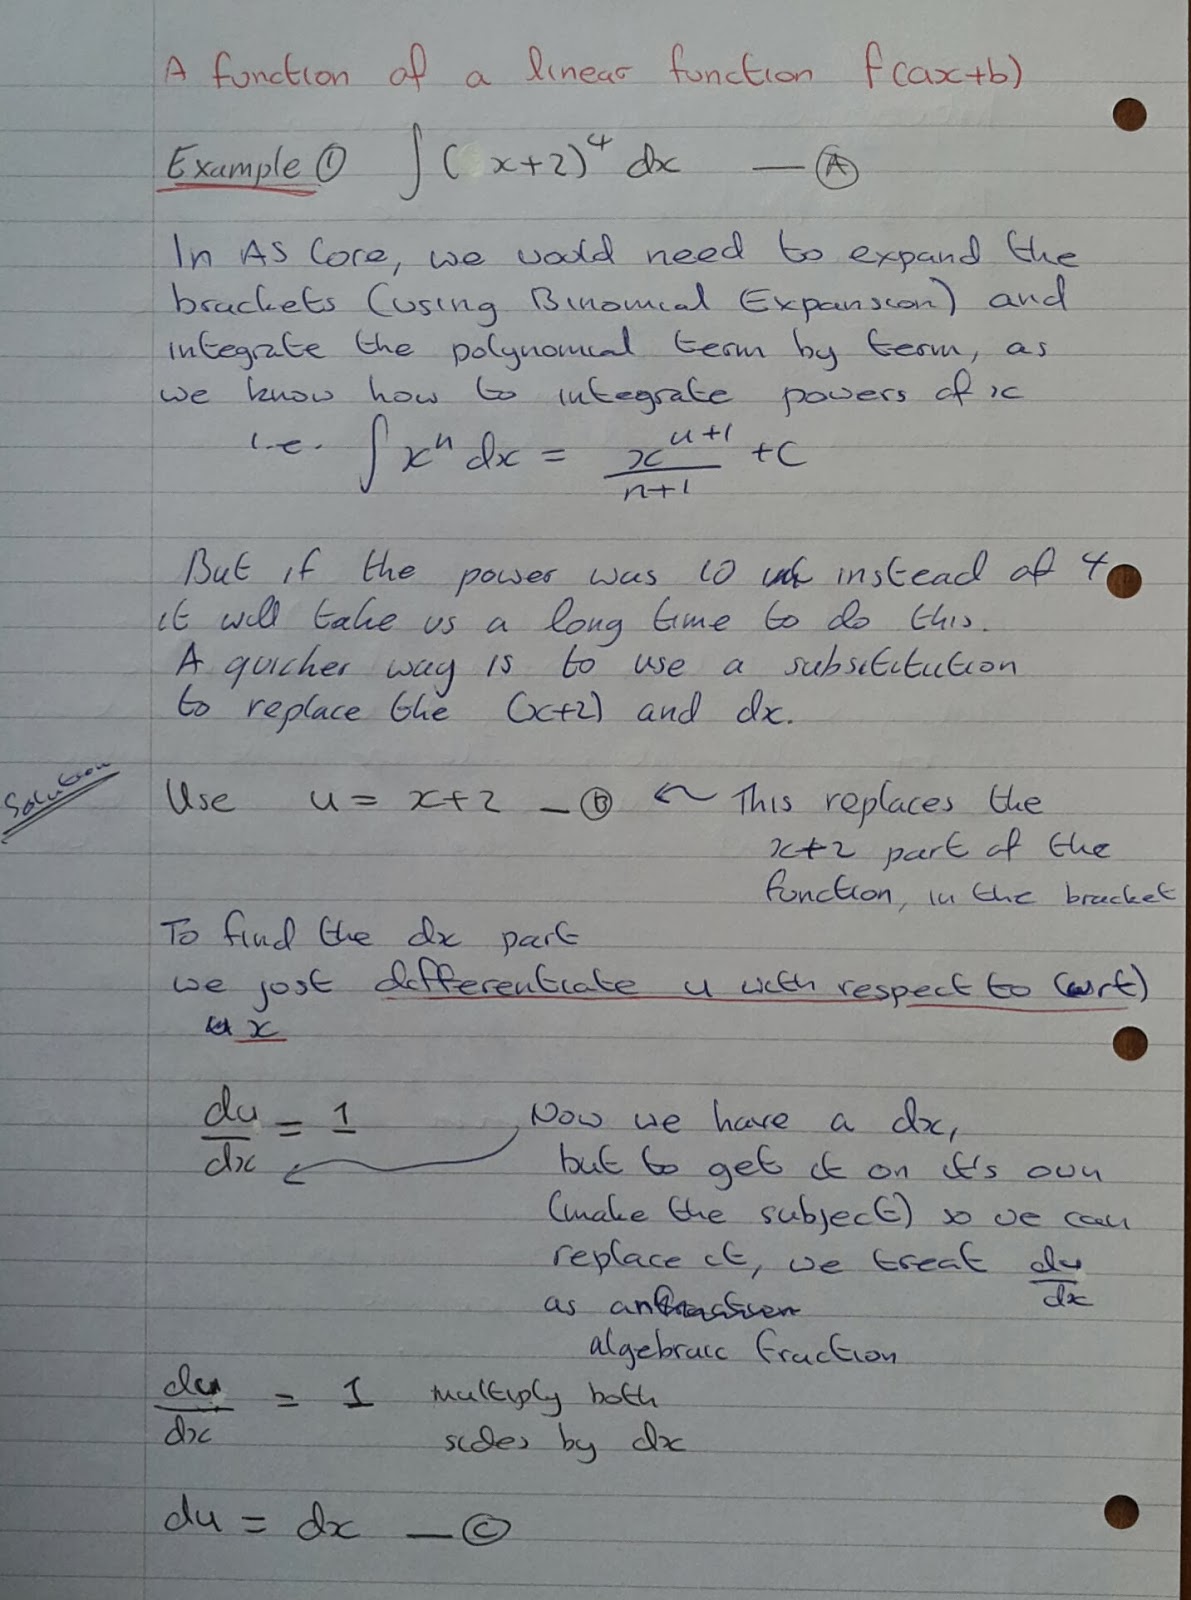 A function of a linear function f(ax+b)
Example ① ∫(x+2)⁴ dx — Ⓐ
In AS Core, we would need to expand the
brackets (using Binomial Expansion) and
integrate the polynomial term by term, as
we know how to integrate powers of x
i.e. ∫xⁿ dx = xⁿ⁺¹/n+1 + C
But if the power was 10 instead of 4
it will take us a long time to do this.
A quicker way is to use a substitution
to replace the (x+2) and dx.
Solution
Use u = x+2 — Ⓑ ← This replaces the
x+2 part of the
function, in the bracket
To find the dx part
we just differentiate u with respect to (wrt)
x
du/dx = 1 Now we have a dx,
but to get it on it's own
(make the subject) so we can
replace it, we treat du/dx
as an
algebraic fraction
du/dx = 1 multiply both
sides by dx
du = dx — Ⓒ